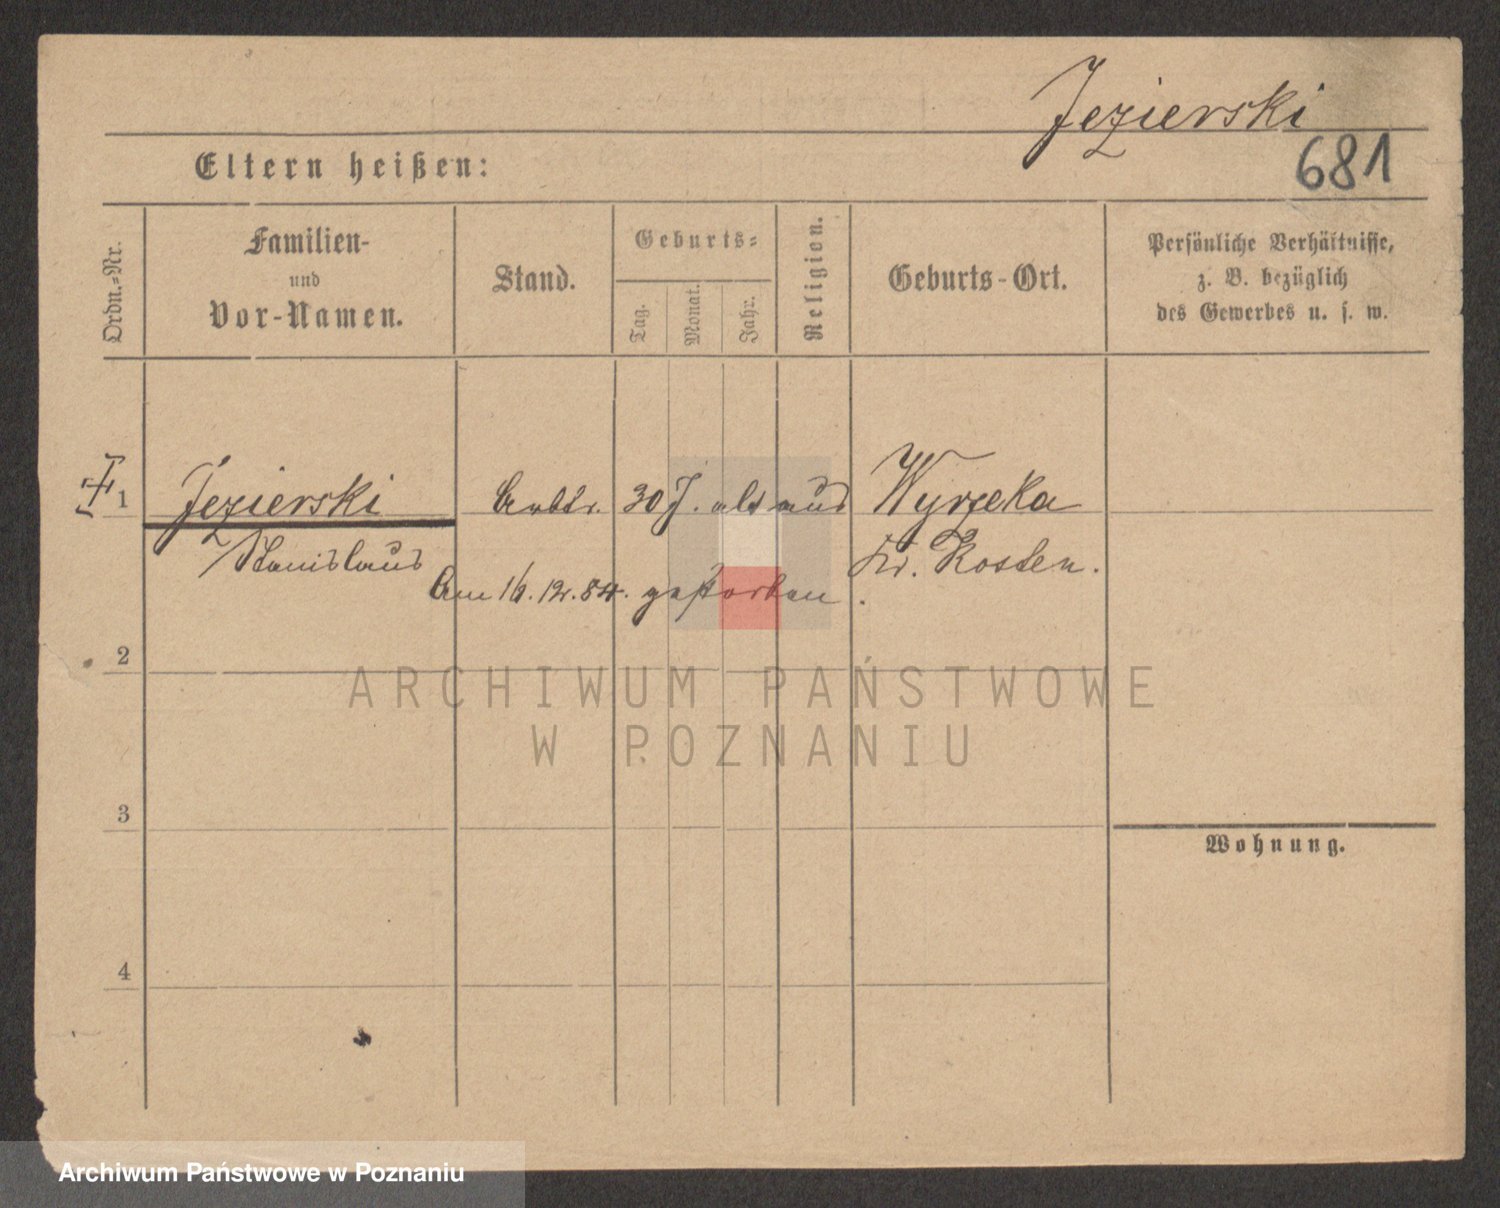 Jezierski
681
Eltern heißen:
Ordn.-Nr.
Familien-
und
Vor-Namen.
Stand.
Geburts-
Tag.
Monat.
Jahr.
Religion.
Geburts-Ort.
Persönliche Verhältnisse,
z. B. bezüglich
des Gewerbes u. s. w.
1 Jezierski Arbtr. 30 J. alt aus Wyrzeka
Stanislaus Kr. Kosten.
Am 16.12.84. gestorben.
2
ARCHIWUM PAŃSTWOWE
W POZNANIU
3
Wohnung.
4
Archiwum Państwowe w Poznaniu